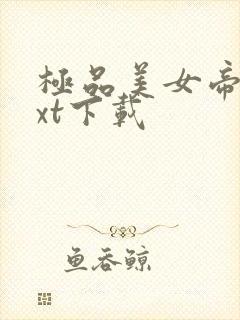 極品美女帝
xt下載
鱼吞鲸